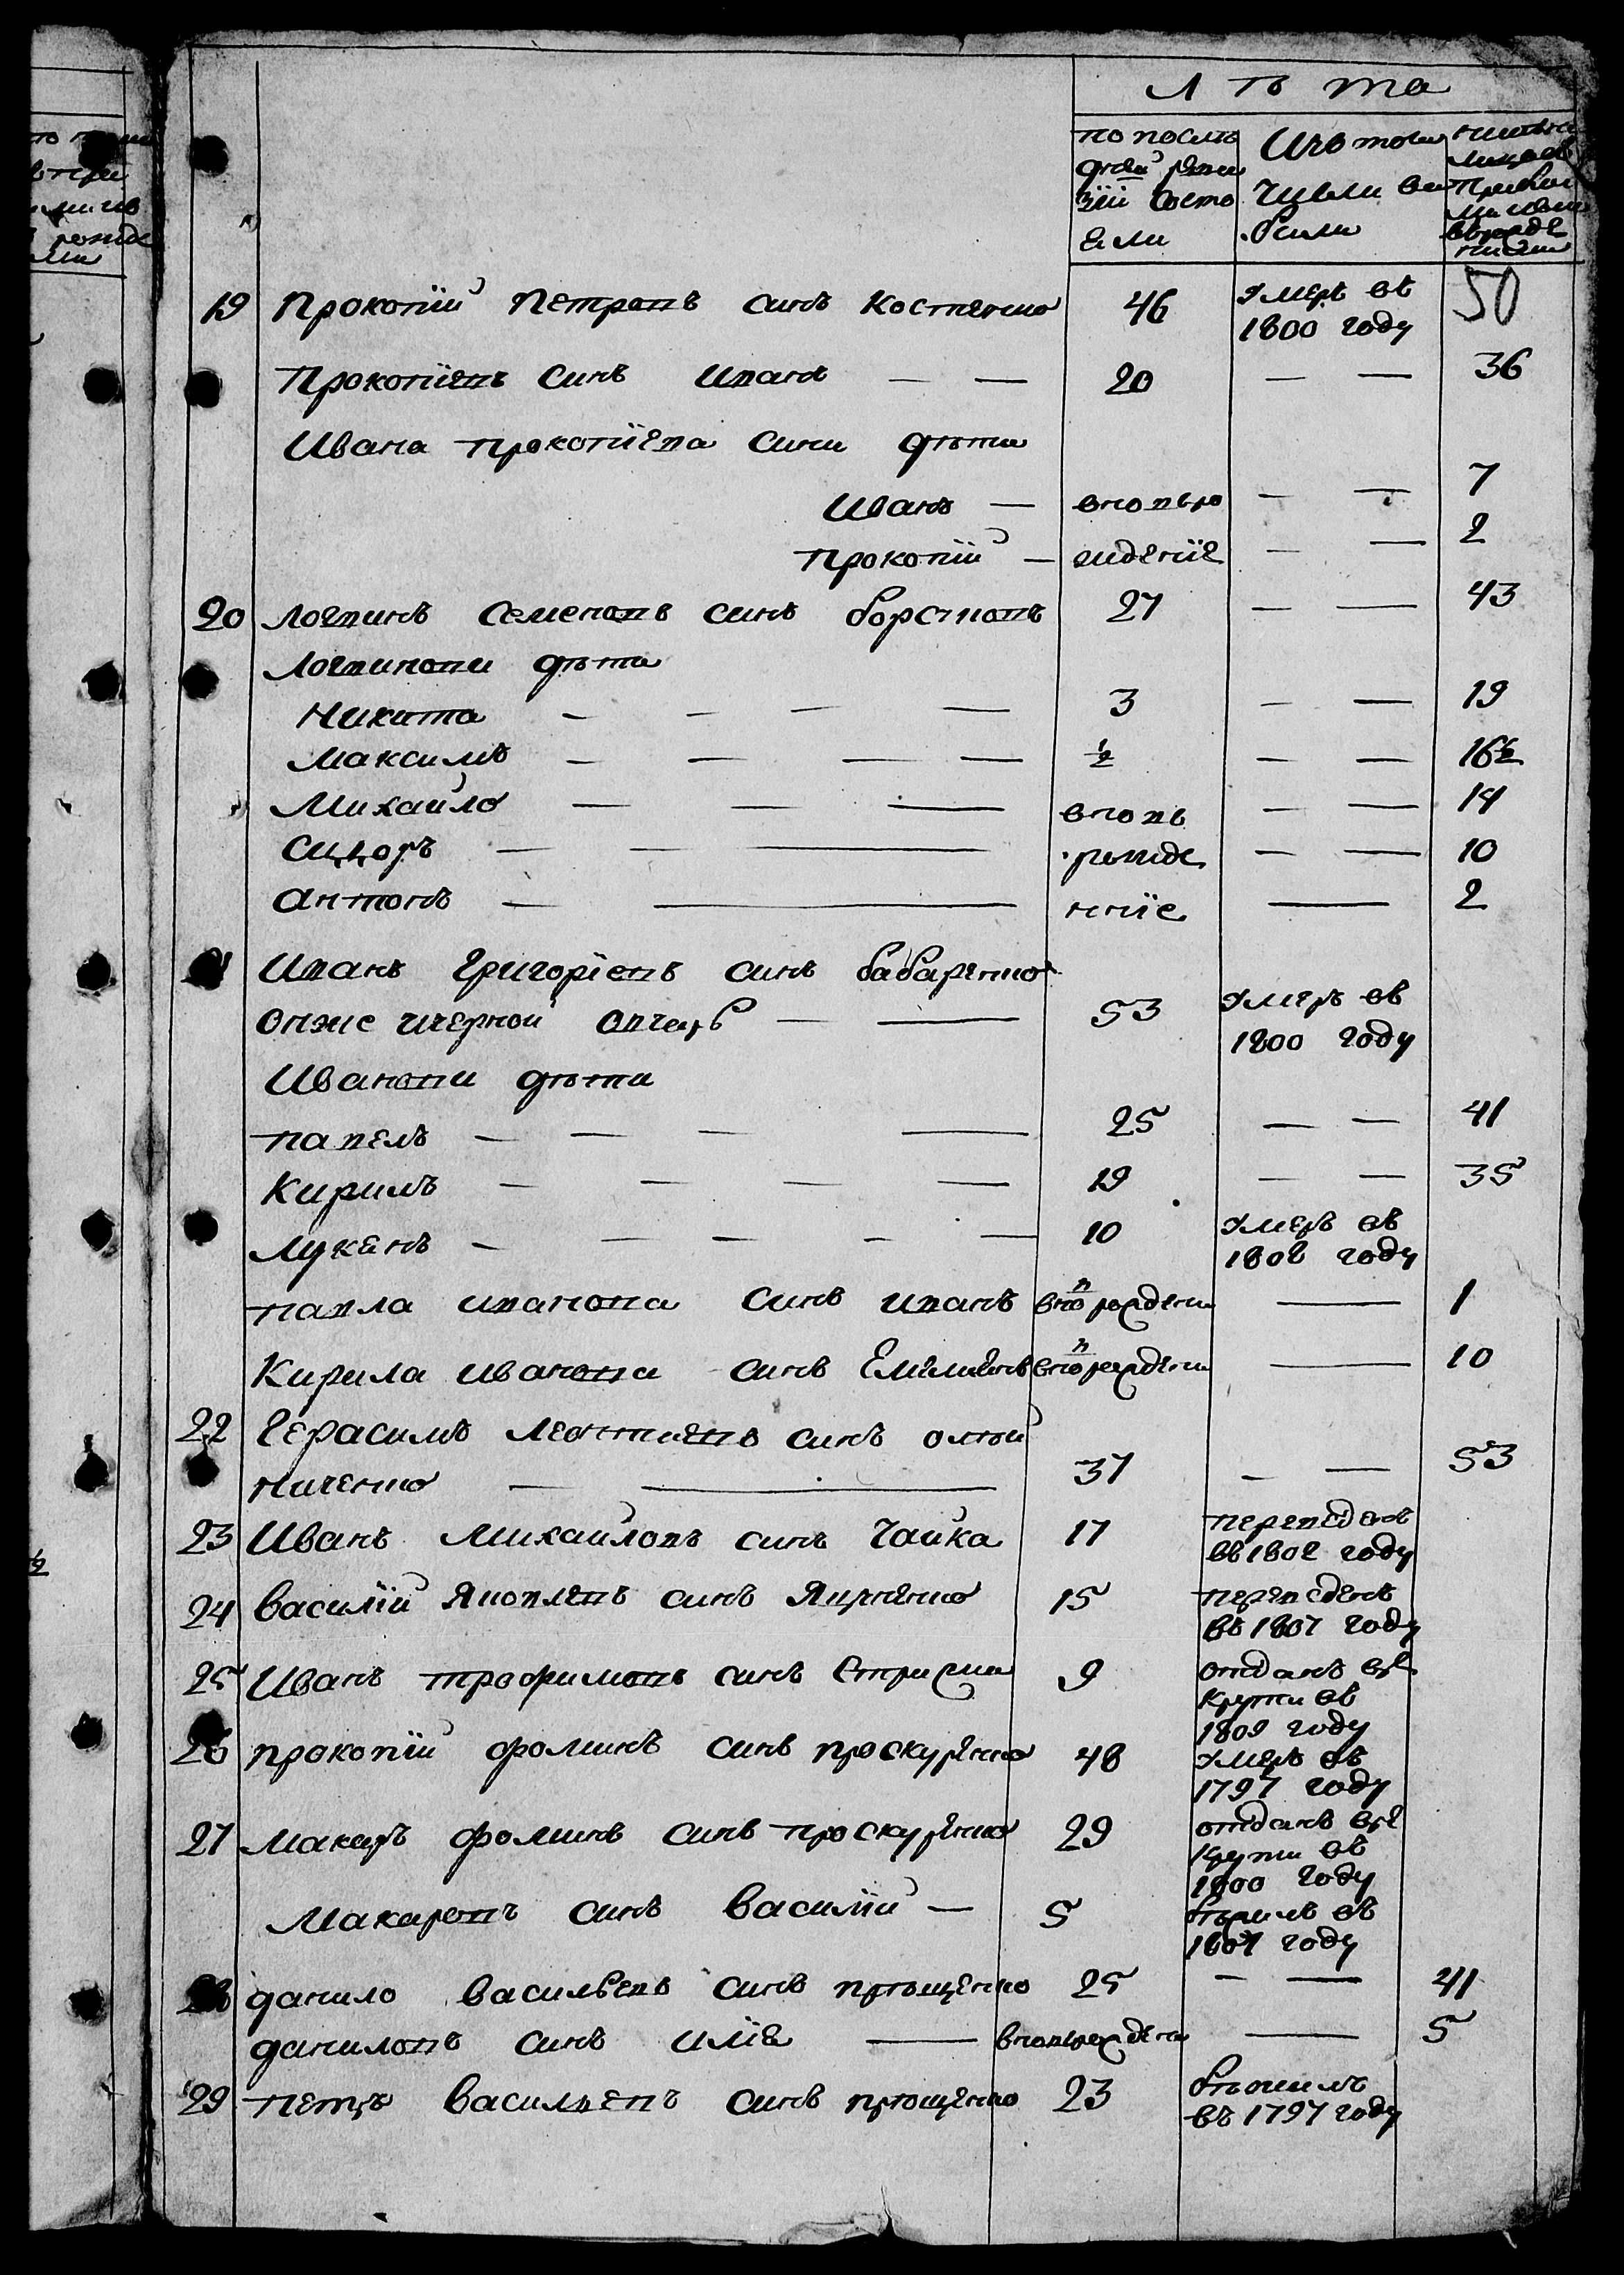 Лѣта
по послѣ
дней реви
зіи состо
яли
Изъ того
числа вы
были
нинѣ на
лицо съ
прибы
лими и ново
рожде
нними
19 Прокопій Петровъ синъ Костенко 46 умеръ въ 50
1800 году
Прокопіевъ синъ Иванъ — — 20 — — 36
Ивана Прокопіева сини дѣти
Иванъ — вновьро — — 7
Прокопій — жденіе — — 2
20 Логвинъ Семеновъ синъ борсуковъ 27 — — 43
Логвинови дѣти
Никита — — — — 3 — — 19
Максимъ — — — — ½ — — 16½
Михайло — — — вновь — — 14
Сидоръ — — — рожде — — 10
Антонъ — — нніе — 2
21 Иванъ Григоріевъ синъ бабаренко
онже черной овчаръ — — 53 умеръ въ
1800 году
Иванови дѣти
Павелъ — — — — 25 — — 41
Кирилъ — — — — 19 — — 35
Лукянъ — — — — — 10 умеръ въ
1802 году
Павла иванова синъ иванъ внов рожденъ — 1
Кирила иванова синъ Емелиянъ внов рожденъ — 10
22 Герасимъ Леонтиевъ синъ олій
ниченко — — 37 — — 53
23 Иванъ Михайловъ синъ Чайка 17 переведенъ
въ 1802 году
24 Василій Яковлевъ синъ Яценко 15 переведенъ
въ 1807 году
25 Иванъ трофимовъ синъ 9 отданъ въ ре
крути въ
1809 году
26 прокопій фоминъ синъ проскуренко 48 умеръ въ
1797 году
27 Макаръ фоминъ синъ проскуренко 29 отданъ въ ре
крути въ
1800 году
Макаровъ синъ Василій — 5 бѣжилъ въ
1807 году
28 данило Васильевъ синъ прощенко 25 — — 41
даниловъ синъ илія — вновьрожденъ — 5
29 петръ Васильевъ синъ прощенко 23 бѣжилъ
въ 1797 году